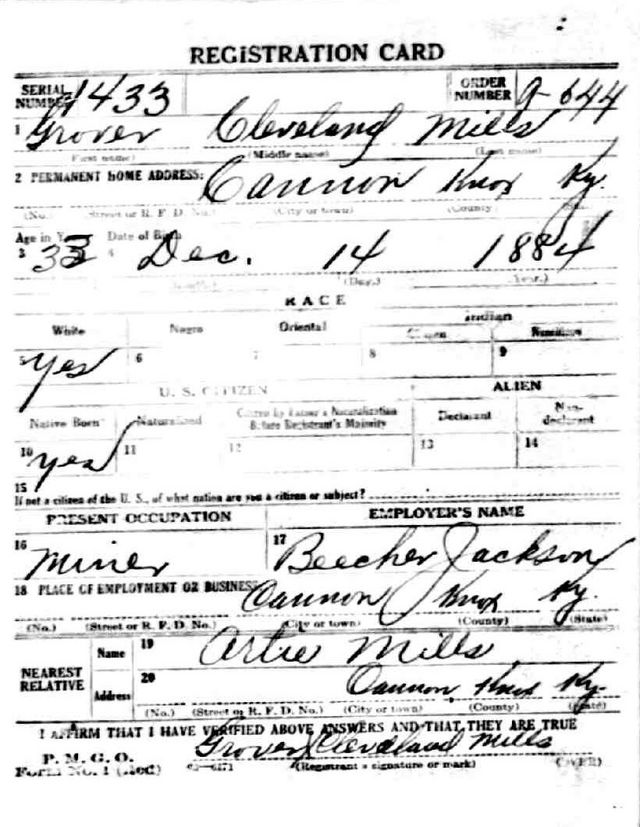 REGISTRATION CARD
SERIAL NUMBER 1433 ORDER NUMBER A-644
1 Grover Cleveland Mills
(First name) (Middle name) (Last name)
2 PERMANENT HOME ADDRESS: Cannon Knox Ky.
(No.) (Street or R. F. D. No.) (City or town) (County)
Age in Date of Birth
3 33 4 Dec. 14 1884
(Day.) (Year.)
RACE
White Negro Oriental Indian
Citizen
5 Yes 6 7 8 9
U. S. CITIZEN ALIEN
Native Born Naturalized Citizen by Father's Naturalization Before Registrant's Majority Declarant Non-declarant
10 yes 11 12 13 14
15
If not a citizen of the U. S., of what nation are you a citizen or subject?
PRESENT OCCUPATION EMPLOYER'S NAME
16 Miner 17 Beecher Jackson
18 PLACE OF EMPLOYMENT OR BUSINESS Cannon Knox Ky.
(No.) (Street or R. F. D. No.) (City or town) (County) (State)
NEAREST RELATIVE Name 19 Artie Mills
Address 20 Cannon Knox Ky.
(No.) (Street or R. F. D. No.) (City or town) (County) (State)
I AFFIRM THAT I HAVE VERIFIED ABOVE ANSWERS AND THAT THEY ARE TRUE
P. M. G. O.
Form No. 1 (Red) Grover Cleveland Mills
(Registrant's signature or mark) (OVER)